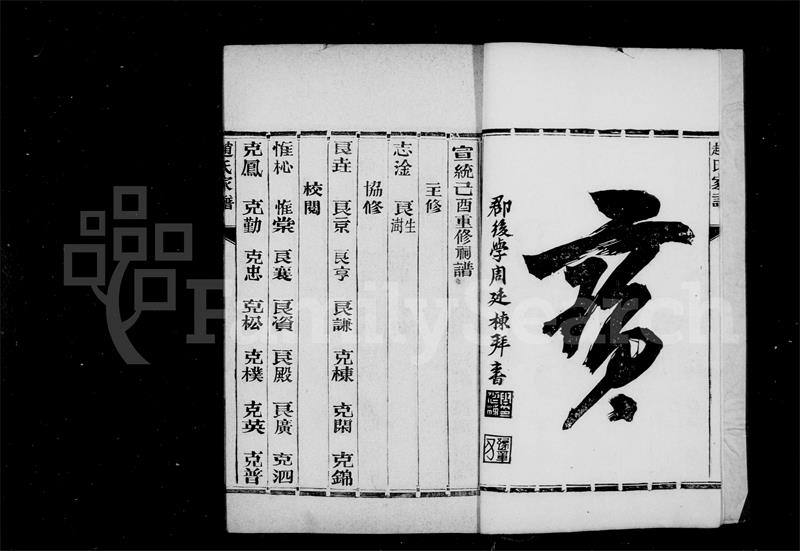 趙氏家譜
亥
郡後學周廷棟拜書
宣統己酉重修祠譜
主修
志淦 良澍生
協修
良垚 良京 良亨 良謙 克棟 克閑 克錦
校閱
惟杺 惟棠 良襄 良資 良殿 良廣 克泗
克鳳 克勤 克忠 克松 克樸 克英 克普
趙氏家譜
FamilySearch